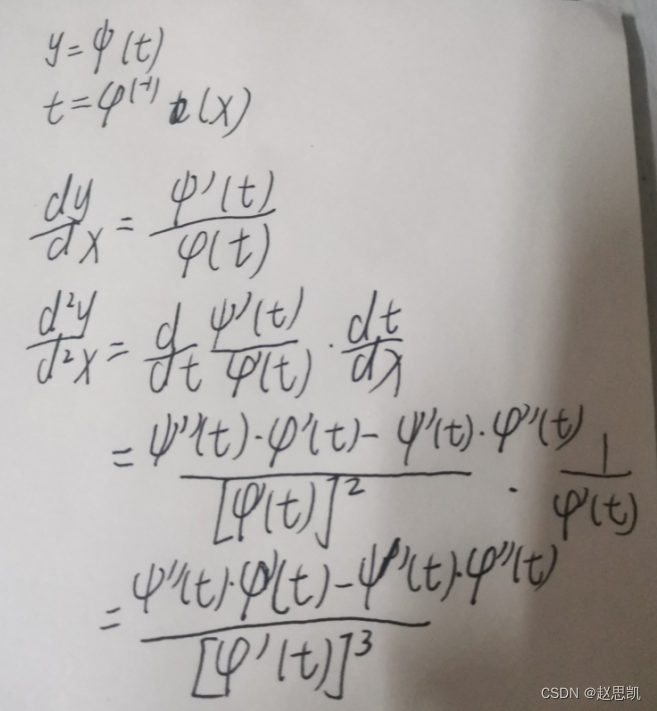 y = ψ(t)
t = φ⁽⁻¹⁾(x)
dy/dx = ψ'(t)/φ(t)
d²y/d²x = d/dt ψ'(t)/φ'(t) · dt/dx
= ψ''(t)·φ'(t) − ψ'(t)·φ''(t) / [φ'(t)]² · 1/φ'(t)
= ψ''(t)·φ'(t) − ψ'(t)·φ''(t) / [φ'(t)]³
CSDN @赵思凯